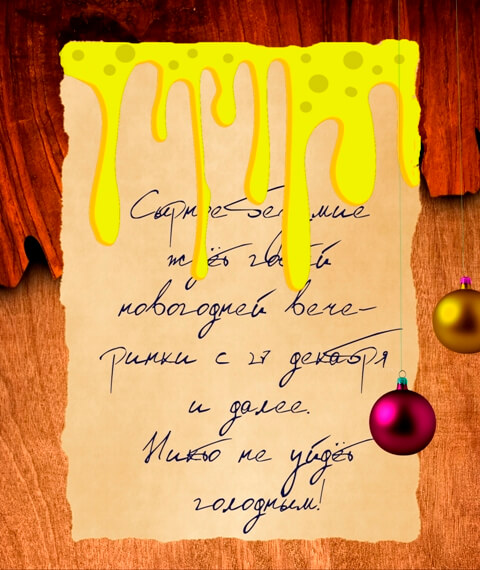 Сырное безумие
ждёт гостей
новогодней вече-
ринки с 27 декабря
и далее.
Никто не уйдёт
голодным!